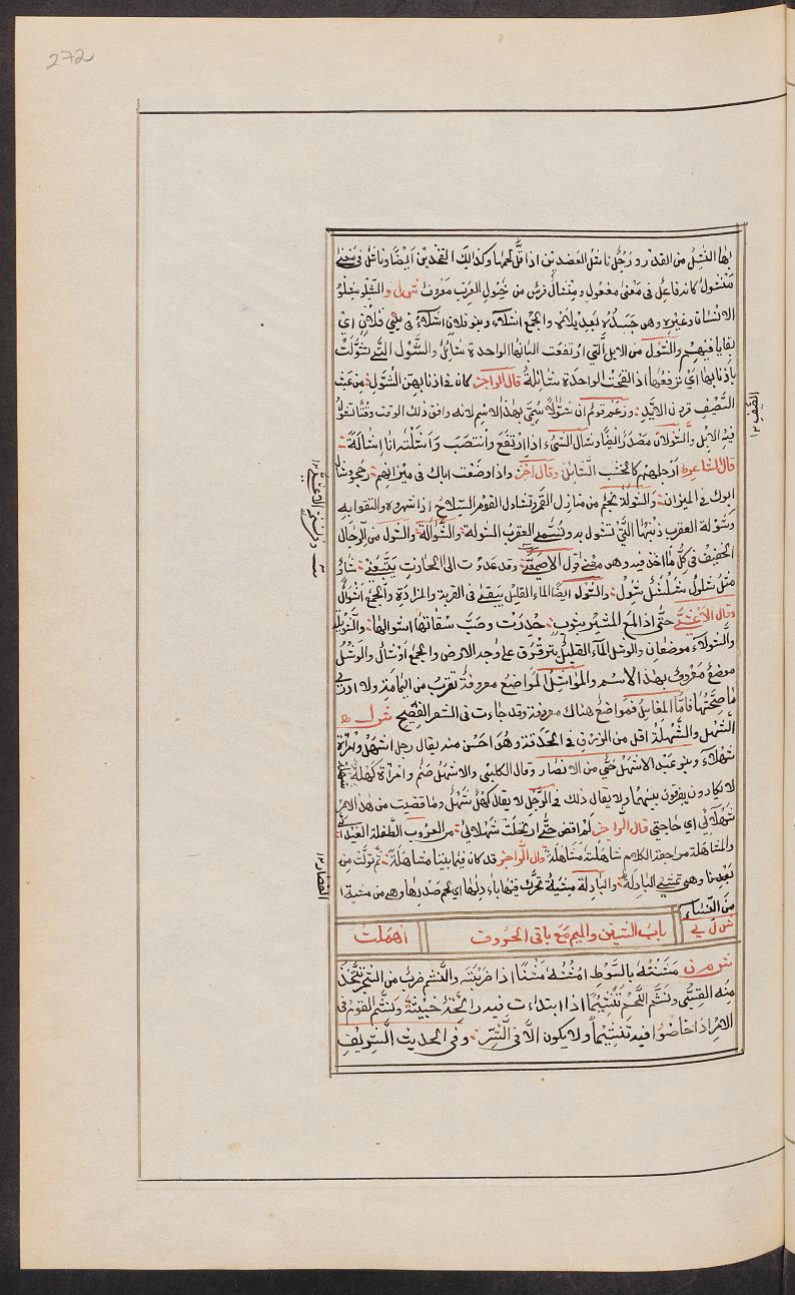 272
بها النشل من القدر ورجل ناشل العضدين اذا قل لحمها وكذالك الفخذين ايضا وناشل فى معنى
منشول كانه فاعل فى معنى مفعول ومنشال فرس من خيول العرب معروف شل و الشلو شلو
الانسان وغيره وهى جسده بعد بلائه والجمع اشلاء وبنو فلان اشلاء فى بنى فلان اى
بقايا فيهم والشول من الابل التى ارتفعت البانها الواحدة شائل والشول التى شولت
باذنابها اى ترفعها اذا لقحت الواحدة شائلة قال الراجز كان فى اذنابهن الشول من عبس
الصيف قرون الايل وزعم قوم ان شوالا سمى بهذا الاسم لانه وافق ذلك الوقت وقتا تشول
فيه الابل والشولان مصدر ايضا وشال الشىء اذا ارتفع وانتصب واشلته انا اشالة
قال الشاعر ارجلهم كالخشب الشائل وقال اخر واذا وضعت اباك فى ميزانهم رجحوا وشال
ابوك فى الميزان والشولة نجم من منازل القمر وتشاول القوم السلاح اذا شهروه والتقوا به
وشولة العقرب ذنبها التى تشول به وتسمى العقرب الشولة والشوالة والشول من الرجال
الخفيف فى كل ما اخذ فيه وهو معنى قول الاعشى وقد غدوت الى الحانوت يتبعنى شاو
مشل شلول شلشل شول والشول ايضا الماء القليل يبقى فى القربة والمزادة والجمع اشوال
وقال الاعشى حتى اذا لمع المشير بثوبه وصب سقاتها اشوالها والشويلة
والشولاء موضعان والوشل الماء القليل يترقرق على وجه الارض والجمع اوشال والوشل
موضع معروف بهذا الاسم والمواشل المواضع معروفة تقرب من اليمامة ولا ادرى
ما صحتها فاما المفاسل فمواضع هناك معروفة وقد جاءت فى الشعر الفصيح ش ل ه
الشهل والشهلة اقل من الزرق فى الحدقة وهو احسن منه يقال رجل اشهل وامراة
شهلاء وبنو عبد الاشهل حى من الانصار وقال الكلبى والاشهل صنم وامراة كهلة
لا يكادون يفرقون بينهما ولا يقال ذلك فى الرجل لا يقال كهل شهل وما قضيت من هذا الامر
شهلائى اى حاجتى قال الراجز لم اقض حتى ارتحلت شهلائى من العروب الطفلة الغيداء
والمشاهلة مراجعة الكلام شاهلته مشاهلة قال الراجز قد كان فيما بيننا مشاهلة ثم تولت
وهى تمشى البادلة والبادلة مشية تحرك فيها باديها اى لحم صدرها وهى من مشية
من النساء
ش ل ى باب الشين والميم مع باقى الحروف اهملت
ش م ن مشنته بالسوط امشنه مشنا اذا ضربته والنشم ضرب من الشجر تتخذ
منه القسى ونشم اللحم تنشيما اذا ابتدات فيه رائحة خبيثة ونشم القوم فى
الامر اذا خاضوا فيه تنشيما ولا يكون الا فى الشر وفى الحديث الشريف